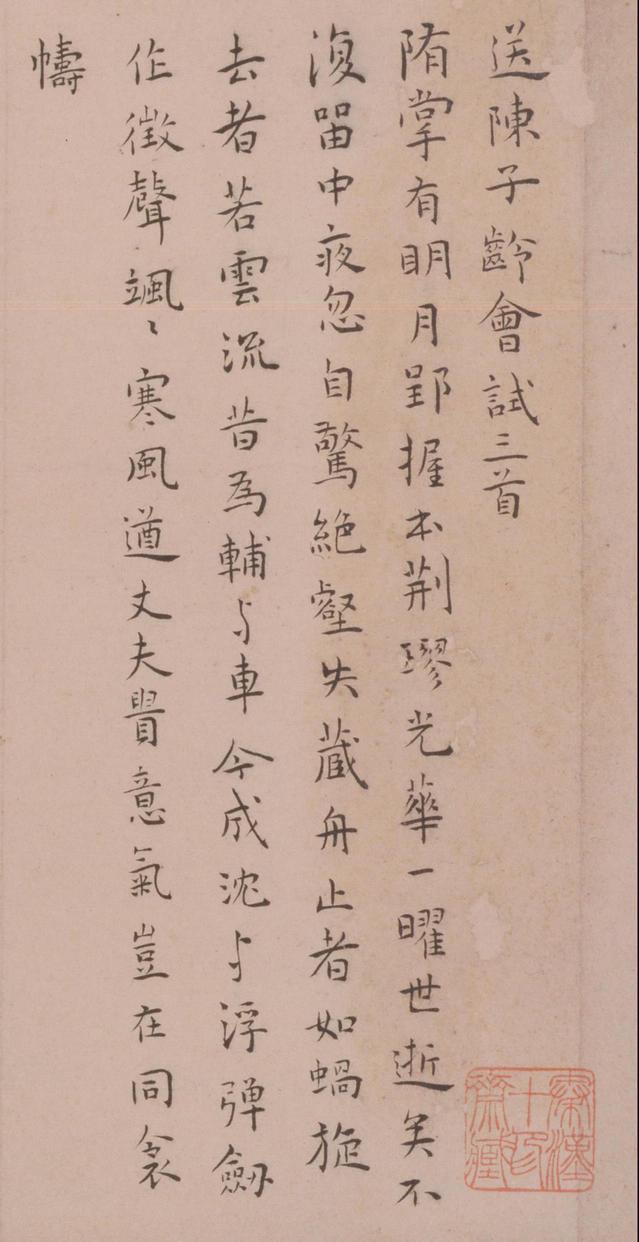 送陳子齡會試三首
隋掌有明月郢握本荆璆光華一曜世逝矣不
復留中夜忽自驚絕壑失藏舟止者如蝸旋
去者若雲流昔為輔与車今成沈与浮弹劔
作徵聲颯〻寒風遒丈夫貴意氣豈在同衾
幬